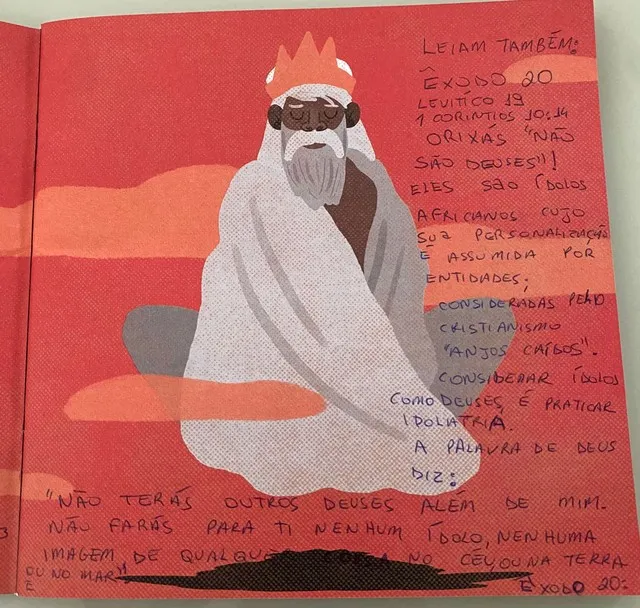 LEIAM TAMBÉM:
ÊXODO 20
LEVITÍCO 19
1 CORINTIOS 10:14
ORIXÁS "NÃO
SÃO DEUSES"!
ELES SÃO ÍDOLOS
AFRICANOS CUJO
SUA PERSONALIZAÇÃO
É ASSUMIDA POR
ENTIDADES;
CONSIDERADAS PELO
CRISTIANISMO
"ANJOS CAÍDOS".
CONSIDERAR ÍDOLOS
COMO DEUSES, É PRATICAR
IDOLATRIA.
A PALAVRA DE DEUS
DIZ:
"NÃO TERÁS OUTROS DEUSES ALÉM DE MIM.
NÃO FARÁS PARA TI NENHUM ÍDOLO, NENHUMA
IMAGEM DE QUALQUER COISA NO CÉU OU NA TERRA
OU NO MAR"
ÊXODO 20: